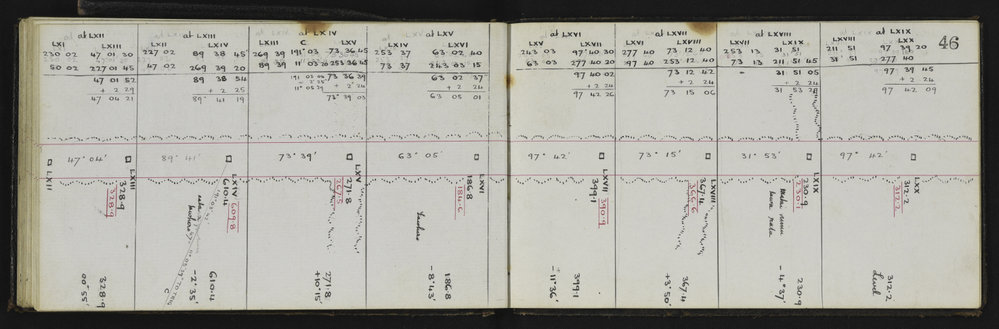 46
at LXII
LXI LXIII
230 02 47 01 30
50 02 227 01 45
47 01 52
+ 2 29
47 04 21
at LXIII
LXII LXIV
227 02 89 38 45
47 02 269 39 20
89 38 54
+ 2 25
89° 41 19
at LXIV
LXIII C LXV
269 39 191° 03 73 36 45
89 39 11° 03 253 36 45
73 36 39
+ 2 25 + 2 24
11° 05 29 73° 39 03
at LXV
LXIV LXVI
253 37 63 02 40
73 37 243 03 15
63 02 37
+ 2 24
63 05 01
at LXVI
LXV LXVII
243 03 97° 40 30
63 03 277 40 20
97 40 02
+ 2 24
97 42 26
at LXVII
LXVI LXVIII
277 40 73 12 40
97 40 253 12 40
73 12 42
+ 2 24
73 15 06
at LXVIII
LXVII LXIX
253 13 31 51
73 13 211 51 45
31 51 05
+ 2 24
31 53
at LXIX
LXVIII LXX
211 51 97 39 20
31° 51 277 40
97 39 45
+ 2 24
97 42 09
47° 04'
89° 41'
73° 39'
63° 05'
97° 42'
73° 15'
31° 53'
97° 42'
LXII
LXIII
328.9
328.9
328.9
00° 55'
LXIV
610.4
609.8
610.4
-2° 35'
TO TRIG
C
LXV
271.8
267.5
271.8
+10° 15'
LXVI
186.8
184.6
186.8
-8° 43'
LXVII
399.1
390.9
399.1
-11° 36'
LXVIII
367.4
366.6
367.4
+3° 50'
LXIX
230.9
230.1
230.9
-4° 37'
LXX
312.2
312.2
312.2
Level